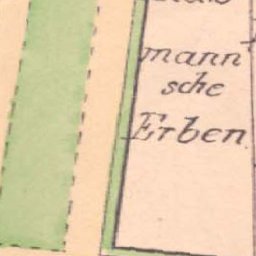 mann'
sche
Erben.